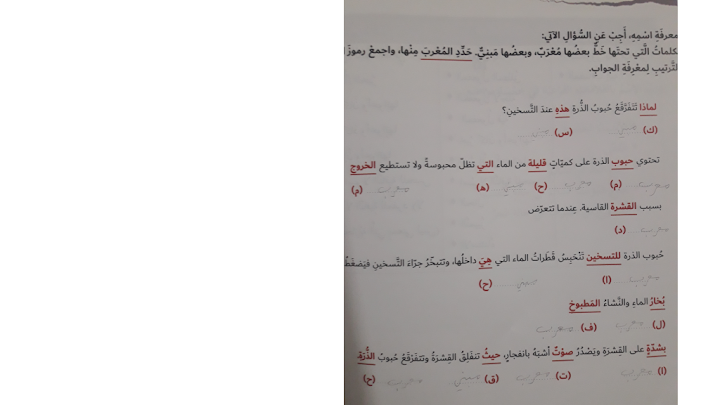 معرفَةِ اسْمِهِ، أَجِبْ عَنِ السُّؤالِ الآتي:
كلماتُ الَّتي تحتَها خَطٌّ بعضُها مُعْرَبٌ، وبعضُها مَبنِيٌّ. حَدِّدِ المُعْرَبَ مِنْها، واجمعْ رموزَ
التَّرتيبِ لِمعْرِفَةِ الجوابِ.
لماذا تَتَفَرْقَعُ حُبوبُ الذُّرةِ هذهِ عندَ التَّسخينِ؟
(ك) مبني (س) مبني
تحتوي حبوب الذرة على كميّاتٍ قليلة من الماء التي تظلّ محبوسةً ولا تستطيع الخروج
(م) معرب (ح) معرب (هـ) مبني (م) معرب
بسبب القشرة القاسية. عِندما تتعرّض
(د) معرب
حُبوب الذرة للتسخين تَنْحَبِسُ قَطَراتُ الماء التي هِيَ داخلَها، وتتبخّرُ جرّاءَ التَّسخينِ فيَضغَطُ
(ا) معرب (ح) مبني
بُخارُ الماءِ والنَّشاءُ المَطبوخِ
(ل) معرب (ف) معرب
بشدّةٍ على القِشرَةِ ويَصْدُرُ صوْتٌ أشبَهُ بانفجارٍ، حيثُ تنفَلِقُ القِشرَةُ وتتفَرْقَعُ حُبوبُ الذُّرَةِ.
(ا) معرب (ت) معرب (ق) مبني (ج) معرب